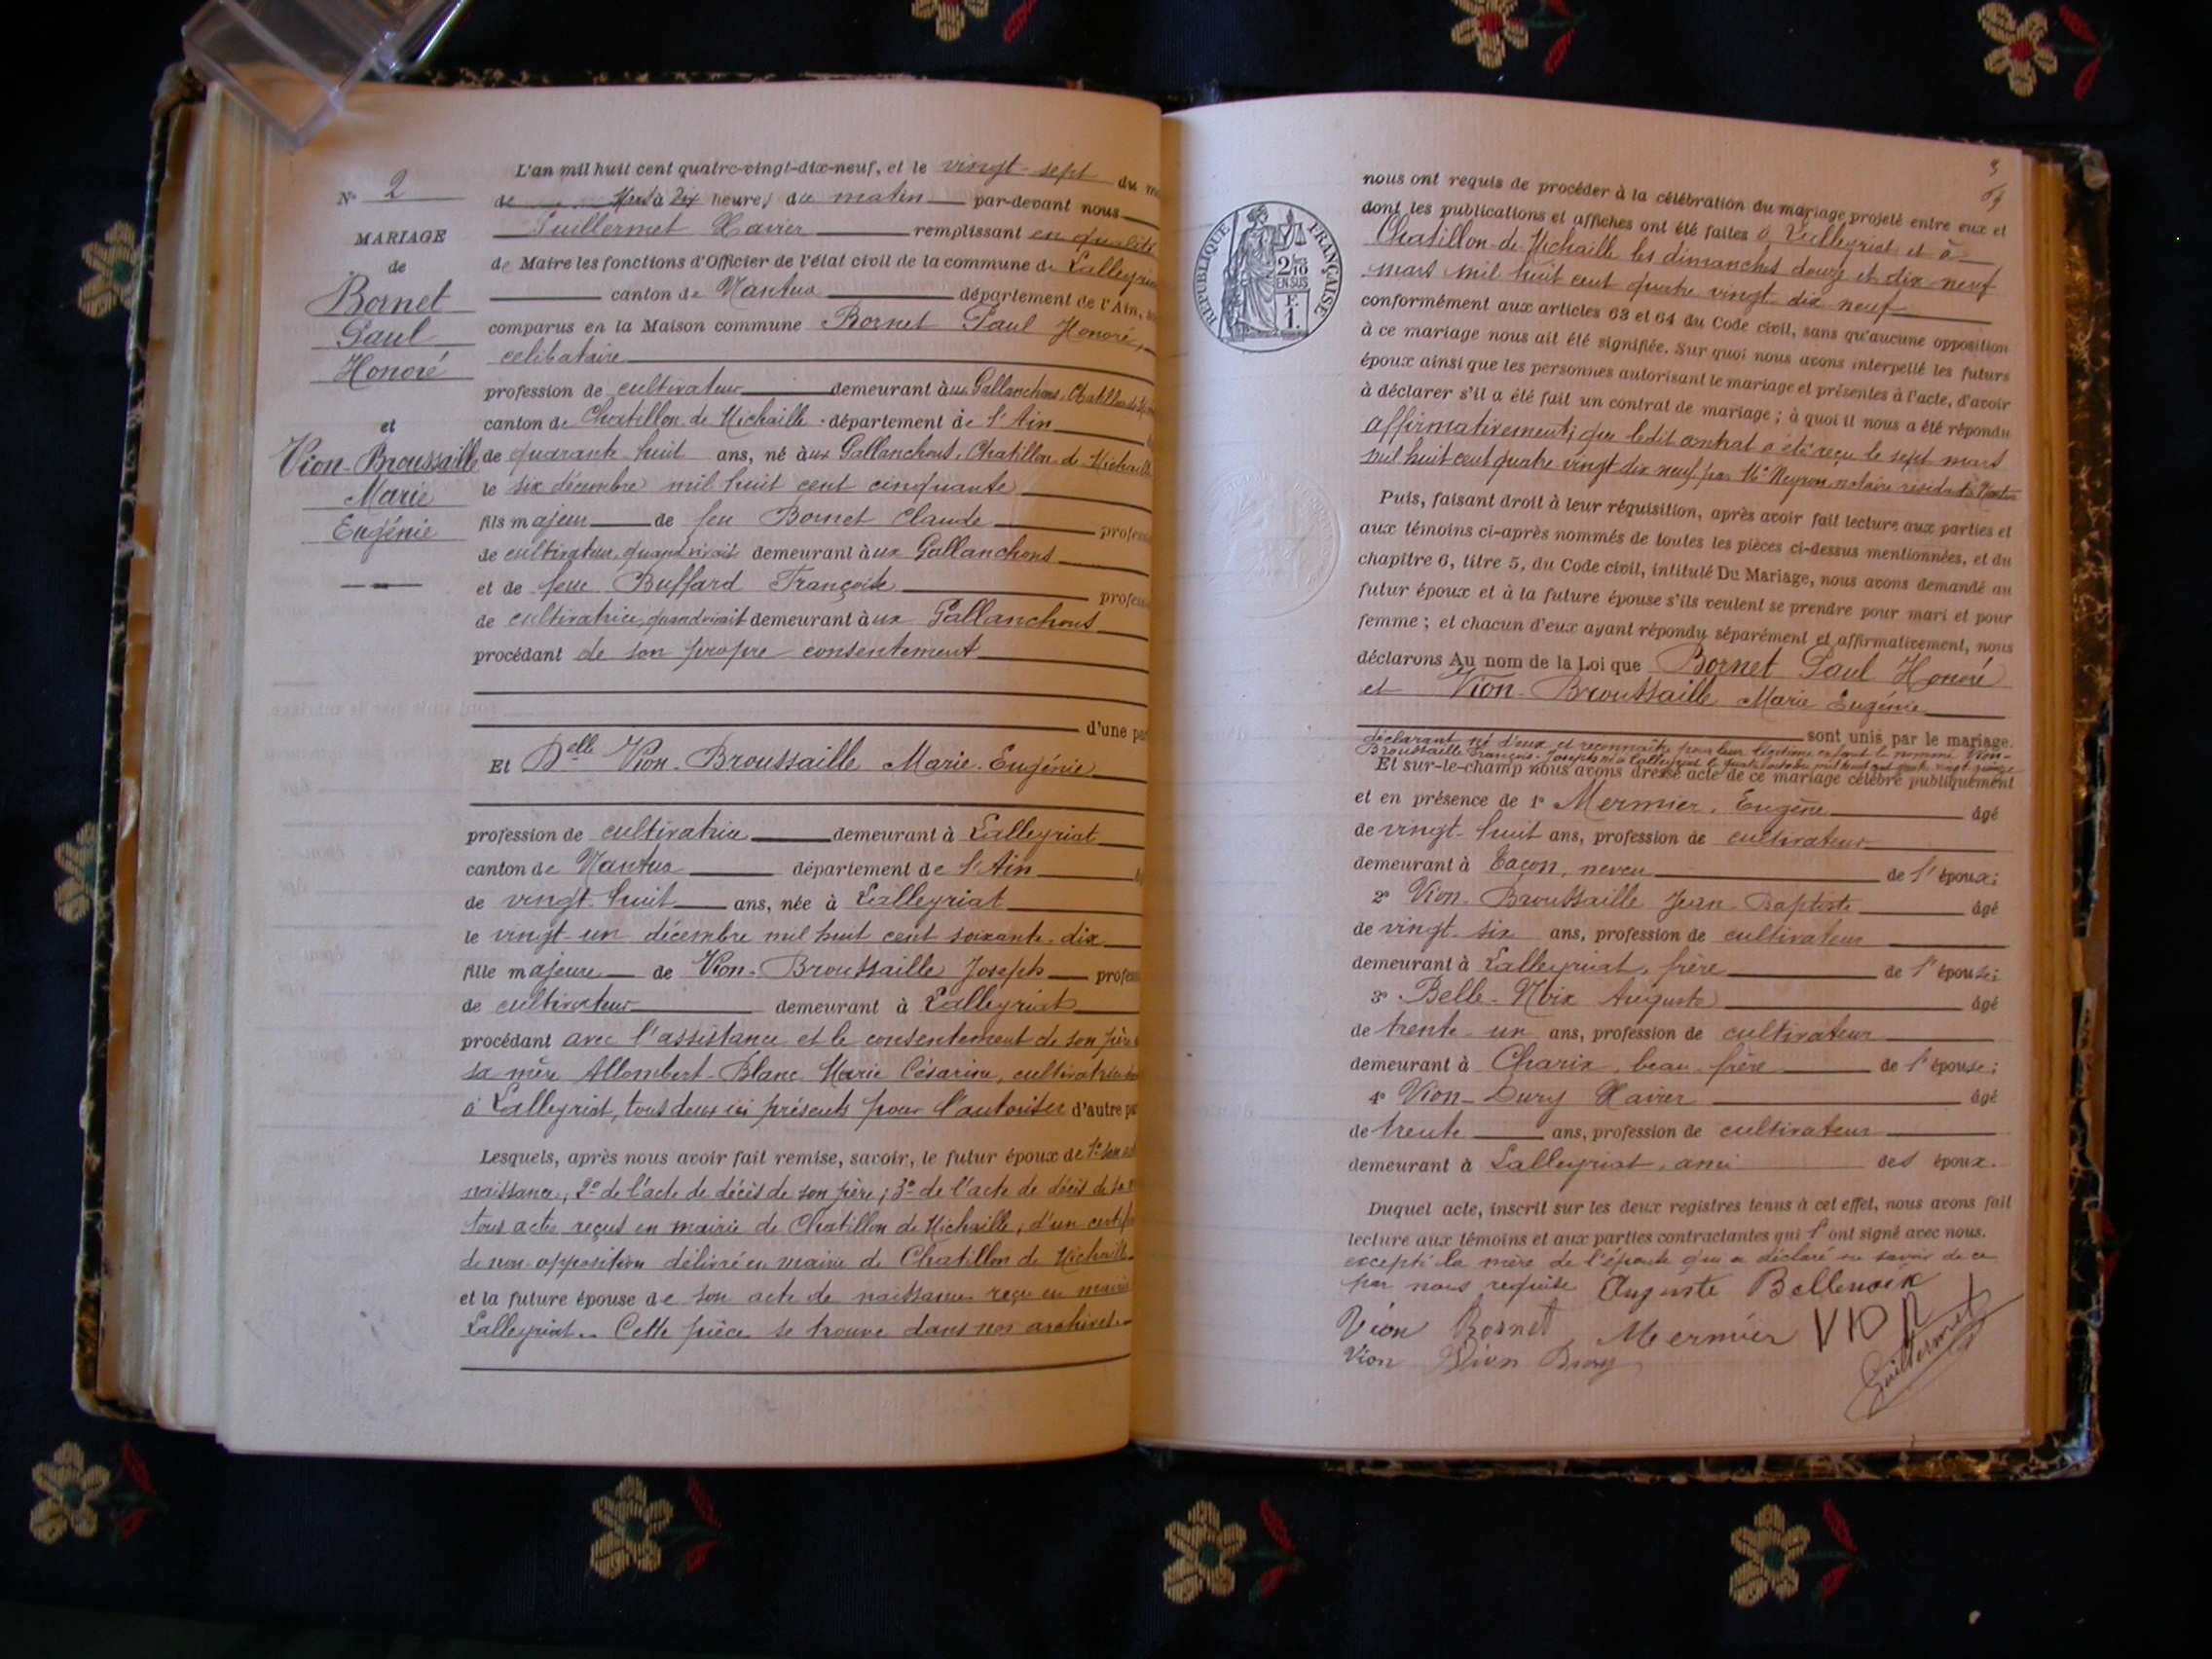 N° 2
MARIAGE
de
Bornet
Paul
Honoré
et
Vion-Broussaille
Marie
Eugénie
L'an mil huit cent quatre-vingt-dix-neuf, et le vingt-sept du
de à Dix heures du matin par-devant nous
Guillermet Xavier remplissant en qualité
de Maire les fonctions d'Officier de l'état civil de la commune de Lalleyriat
canton de Nantua département de l'Ain,
comparus en la Maison commune Bornet Paul Honoré,
celibataire
profession de cultivateur demeurant aux Gallanchons, Chatillon de
canton de Chatillon de Michaille département de l'Ain
de quarante huit ans, né aux Gallanchons, Chatillon de Michaille
le six décembre mil huit cent cinquante
fils majeur de feu Bornet Claude
de cultivateur, quand vivait demeurant aux Gallanchons
et de feue Buffard Françoise
de cultivatrice, quand vivait demeurant aux Gallanchons
procédant de son propre consentement
d'une
Et Delle Vion-Broussaille Marie-Eugénie
profession de cultivatrice demeurant à Lalleyriat
canton de Nantua département de l'Ain
de vingt-huit ans, née à Lalleyriat
le vingt-un décembre mil huit cent soixante-dix
fille majeure de Vion-Broussaille Joseph
de cultivateur demeurant à Lalleyriat
procédant avec l'assistance et le consentement de son père
sa mère Allombert-Blanc Marie Césarine, cultivatrice
à Lalleyriat, tous deux ici présents pour l'autoriser d'autre
Lesquels, après nous avoir fait remise, savoir, le futur époux de 1° son
naissance, 2° de l'acte de décès de son père; 3° de l'acte de décès de sa
tous actes reçus en mairie de Chatillon de Michaille, d'un
de non opposition délivré en mairie de Chatillon de Michaille
et la future épouse de son acte de naissance reçu en mairie
Lalleyriat. Cette pièce se trouve dans nos archives.
3
RÉPUBLIQUE FRANÇAISE
2/10
EN SUS
F.
1.
nous ont requis de procéder à la célébration du mariage projeté entre eux et
dont les publications et affiches ont été faites à Lalleyriat et à
Chatillon-de-Michaille les dimanches douze et dix neuf
mars mil huit cent quatre vingt dix neuf
conformément aux articles 63 et 64 du Code civil, sans qu'aucune opposition
à ce mariage nous ait été signifiée. Sur quoi nous avons interpellé les futurs
époux ainsi que les personnes autorisant le mariage et présentes à l'acte, d'avoir
à déclarer s'il a été fait un contrat de mariage; à quoi il nous a été répondu
affirmativement; que ledit contrat a été reçu le sept mars
mil huit cent quatre vingt dix neuf par Me Neyron notaire résidant à Nantua
Puis, faisant droit à leur réquisition, après avoir fait lecture aux parties et
aux témoins ci-après nommés de toutes les pièces ci-dessus mentionnées, et du
chapitre 6, titre 5, du Code civil, intitulé Du Mariage, nous avons demandé au
futur époux et à la future épouse s'ils veulent se prendre pour mari et pour
femme; et chacun d'eux ayant répondu séparément et affirmativement, nous
déclarons Au nom de la Loi que Bornet Paul Honoré
et Vion-Broussaille Marie Eugénie
sont unis par le mariage.
déclarant né d'eux et reconnaître pour leur légitime enfant le nommé Vion-
Broussaille François-Joseph né à Lalleyriat le
Et sur-le-champ nous avons dressé acte de ce mariage célébré publiquement
et en présence de 1° Mermier, Eugène âgé
de vingt-huit ans, profession de cultivateur
demeurant à Tacon, neveu de l'époux;
2° Vion-Broussaille Jean-Baptiste âgé
de vingt-six ans, profession de cultivateur
demeurant à Lalleyriat, frère de l'épouse;
3° Belle-Noix Auguste âgé
de trente-un ans, profession de cultivateur
demeurant à Charix, beau-frère de l'épouse;
4° Vion-Dury Xavier âgé
de trente ans, profession de cultivateur
demeurant à Lalleyriat, ami des époux.
Duquel acte, inscrit sur les deux registres tenus à cet effet, nous avons fait
lecture aux témoins et aux parties contractantes qui l'ont signé avec nous.
excepté la mère de l'épouse qui a déclaré ne savoir de ce
par nous requise Auguste Bellenoix
Vion Bornet Mermier VION
Vion Vion Dury Guillermet